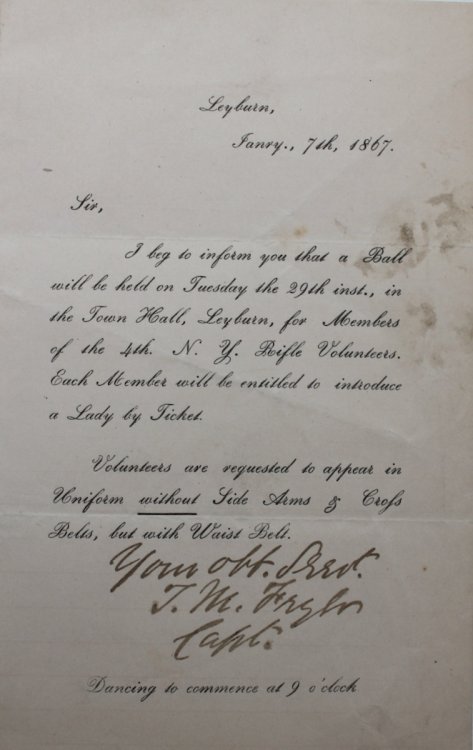 Leyburn,
Janry., 7th, 1867.
Sir,
I beg to inform you that a Ball
will be held on Tuesday the 29th inst., in
the Town Hall, Leyburn, for Members
of the 4th. N. Y. Rifle Volunteers.
Each Member will be entitled to introduce
a Lady by Ticket.
Volunteers are requested to appear in
Uniform without Side Arms & Croſs
Belts, but with Waist Belt.
Your obt. Servt.
T. M.
Capt.
Dancing to commence at 9 o'clock